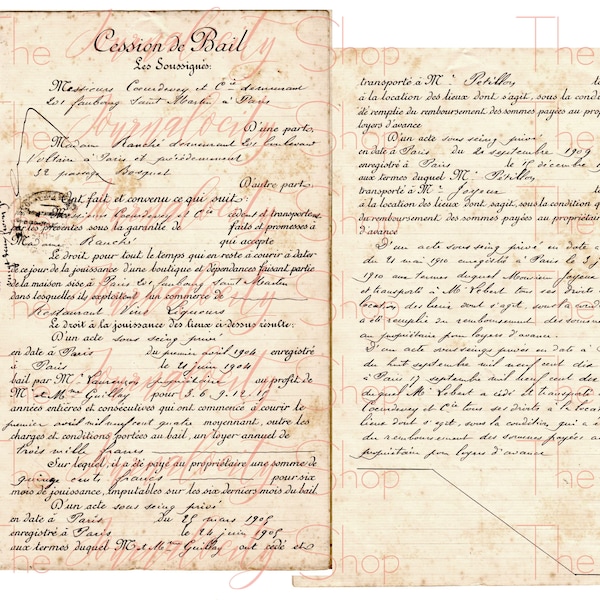 Cession de Bail
Les Soussignés:
Messieurs Coeurdevey et Cie demeurant
201 faubourg Saint Martin à Paris
D'une part,
Madame Ranché demeurant 201 boulevard
Voltaire à Paris et précédemment
52 passage Bosquet
D'autre part
Ont fait et convenu ce qui suit:
Messieurs Coeurdevey et Cie cèdent et transportent
par ces présentes sous la garantie de faits et promesses à
Madame Ranché qui accepte
Le droit, pour tout le temps qui en reste à courir à dater
de ce jour de la jouissance d'une boutique et dépendances faisant partie
de la maison sise à Paris 201 faubourg Saint Martin
dans lesquelles ils exploitent un commerce de
Restaurant Vins Liqueurs
Le droit à la jouissance des lieux ci-dessus résulte:
D'un acte sous seing privé
en date à Paris du premier avril 1904 enregistré
à Paris le 21 juin 1904
bail par Mr propriétaire au profit de
Mr et Mme Guillay pour 3. 6. 9. 12. 15
années entières et consécutives qui ont commencé à courir le
premier avril mil neuf cent quatre moyennant, outre les
charges et conditions portées au bail, un loyer annuel de
trois mille francs
Sur lequel, il a été payé au propriétaire une somme de
quinze cents francs pour six
mois de jouissance, imputables sur les six derniers mois du bail.
D'un acte sous seing privé
en date à Paris du 25 mars 1905
enregistré à Paris le 24 juin 1905
aux termes duquel M et Mme Guillay ont cédé et
transporté à Mr Petillon
à la location des lieux dont s'agit, sous la condition
été remplie du remboursement des sommes payées au prop
loyers d'avance
D'un acte sous seing privé
en date à Paris du 20 septembre 1909
enregistré à Paris le 15 décembre 1
aux termes duquel Mr Petillon
transporté à Mr Joyeux
à la location des lieux dont s'agit, sous la condition q
du remboursement des sommes payées au propriétaire
d'avance
D'un acte sous seing privé en date à
du 21 mai 1910 enregistré à Paris le 3 j
1910 aux termes duquel Monsieur Joyeux
et transporté à Mr Lebert tous ses droits
location des lieux dont s'agit, sous la cond
a été remplie du remboursement des somm
au propriétaire pour loyers d'avance.
D'un acte sous seings privés en date à
du huit septembre mil neuf cent dix
à Paris 17 septembre mil neuf cent dix
duquel Mr Lebert a cédé et transporté
Coeurdevey et Cie tous ses droits à la locat
dont s'agit, sous la condition, qui a é
du remboursement des sommes payées au
propriétaire pour loyers d'avance
The
Shop
The
Shop
The
Shop
The
Shop